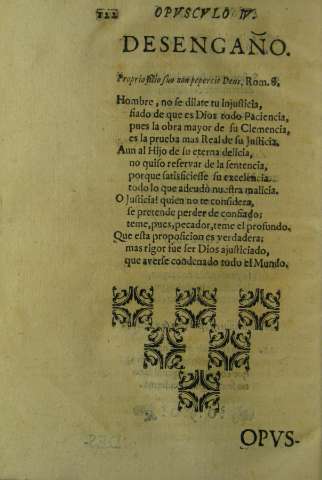 122 OPVSCVLO IV.
DESENGAÑO.
Proprio filio suo non pepercit Deus, Rom. 8.
Hombre, no se dilate tu injusticia,
fiado de que es Dios todo Paciencia,
pues la obra mayor de su Clemencia,
es la prueba mas Real de su Justicia.
Aun al Hijo de su eterna delicia,
no quiso reservar de la sentencia,
porque satisficiesse su excelencia
todo lo que adeudò nuestra malicia.
O Justicia! quien no te considera,
se pretende perder de confiado;
teme, pues, pecador, teme el profundo.
Que esta proposicion es verdadera;
mas rigor fue ser Dios ajusticiado,
que averse condenado todo el Mundo.
OPVS-